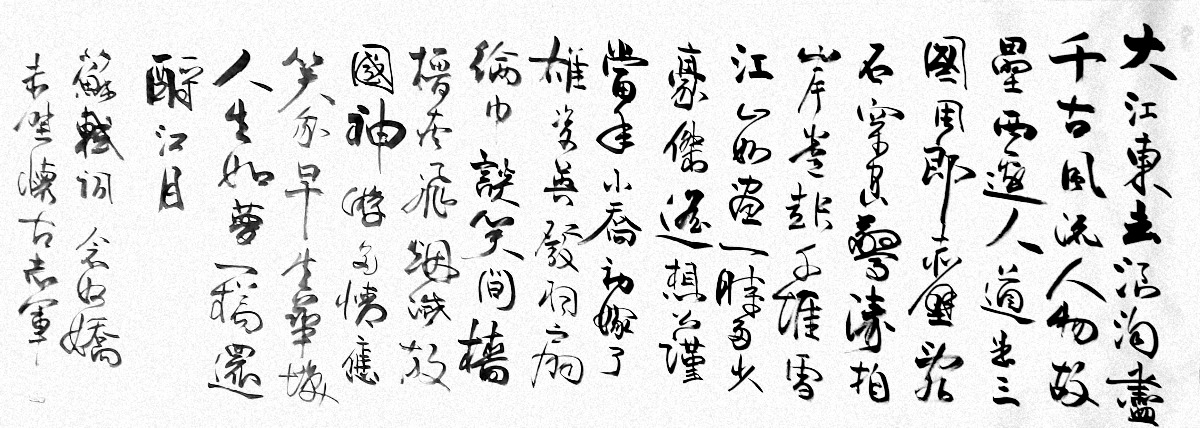 大江東去浪淘盡
千古風流人物故
壘西邊人道是三
國周郎赤壁亂
石穿空驚濤拍
岸卷起千堆雪
江山如畫一時多少
豪傑遙想公瑾
當年小喬初嫁了
雄姿英發羽扇
綸巾談笑間檣
櫓灰飛烟滅故
國神游多情應
笑我早生華髮
人生如夢一樽還
酹江月
蘇軾詞念奴嬌
赤壁懷古志軍